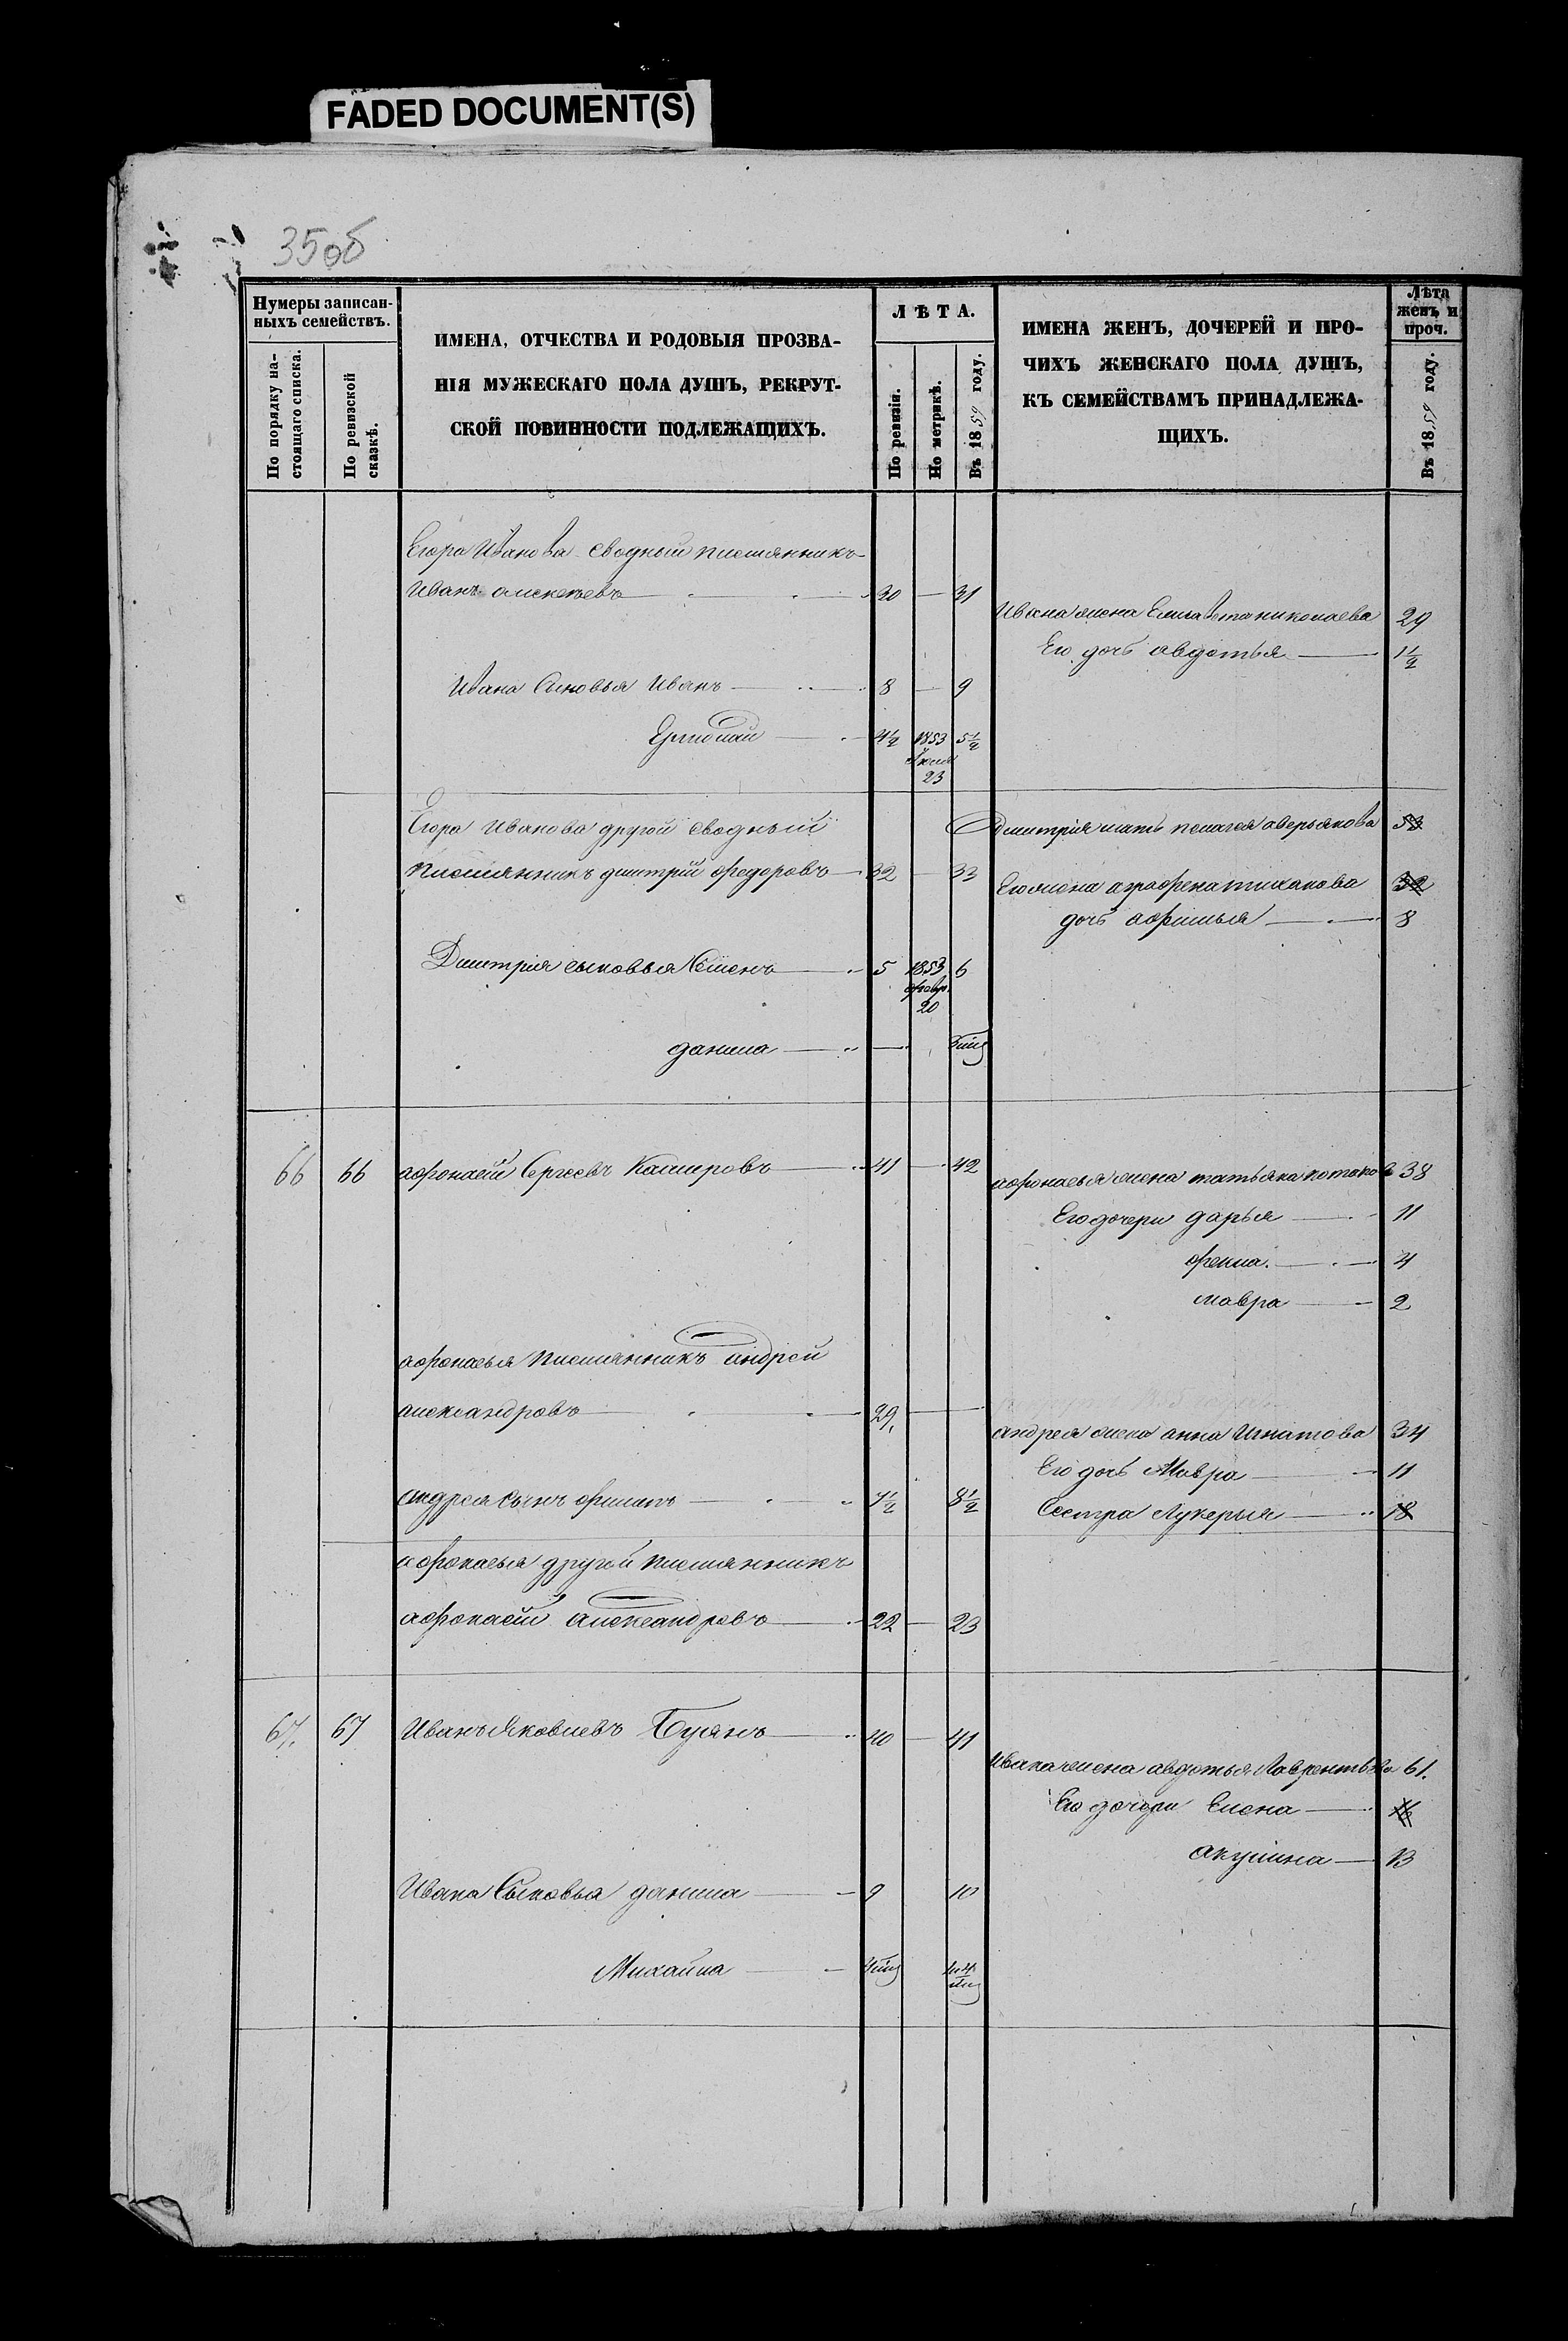 FADED DOCUMENT(S)
35об
Нумеры записан-
ныхъ семействъ.
По порядку на-
стоящаго списка.
По ревизской
сказкѣ.
ИМЕНА, ОТЧЕСТВА И РОДОВЫЯ ПРОЗВА-
НІЯ МУЖЕСКАГО ПОЛА ДУШЪ, РЕКРУТ-
СКОЙ ПОВИННОСТИ ПОДЛЕЖАЩИХЪ.
ЛѢТА.
По ревизіи.
По метрикѣ.
Въ 1859 году.
ИМЕНА ЖЕНЪ, ДОЧЕРЕЙ И ПРО-
ЧИХЪ ЖЕНСКАГО ПОЛА ДУШЪ,
КЪ СЕМЕЙСТВАМЪ ПРИНАДЛЕЖА-
ЩИХЪ.
Лѣта
женъ и
проч.
Въ 1859 году.
Егора Иванова сводный племянникъ
Иванъ алексеевъ 30 — 31
Ивана жена Елисавета николаева 29
Его дочь авдотья 1½
Ивана Сыновья Иванъ 8 — 9
4½ 1853 5½
23
Егора Иванова другой сводный
Дмитрія мать пелагея аверьянова 53
племянникъ дмитрій федоровъ 32 — 33
Его жена аграфена тиханова 32
дочь афимья 8
Дмитрія сыновья Семенъ 5 1853 6
февр.
20
данила —
66 66 афонасій Сергеевъ Кашировъ 41 — 42
афонасья жена татьяна потапова 38
Его дочери дарья 11
фекла 4
мавра 2
афонасья племянникъ андрей
александровъ 29
андрея жена анна Игнатова 34
Его дочь Мавра 11
андрея сынъ филипъ 7½ 8½
Сестра Лукерья 18
афонасья другой племянникъ
афонасій александровъ 22 — 23
67 67 Иванъ Яковлевъ Буянъ 40 — 41
Ивана жена авдотья Лаврентьева 61.
Его дочери Елена 16
акулина 13
Ивана Сыновья данила 9 10
Михайла